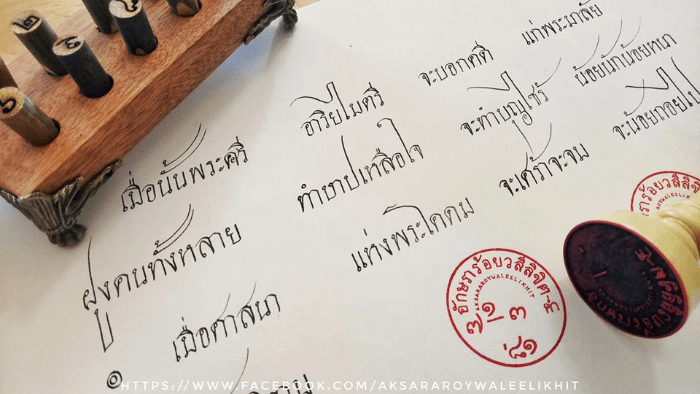 เมื่อนั้นพระศรี อาริยไมตรี จะบอกคดี แก่พระมาลัย
ฝูงคนทั้งหลาย ทำบาปเหลือใจ จะทำบุญไซร้ น้อยนักน้อยหนา
เมื่อศาสนา แห่งพระโคดม จะเศร้าจะจม จะน้อยถอยไป
อักษราร้อยวลีลิขิต
AKSARAROYWALEELIKHIT
HTTPS://WWW.FACEBOOK.COM/AKSARAROYWALEELIKHIT